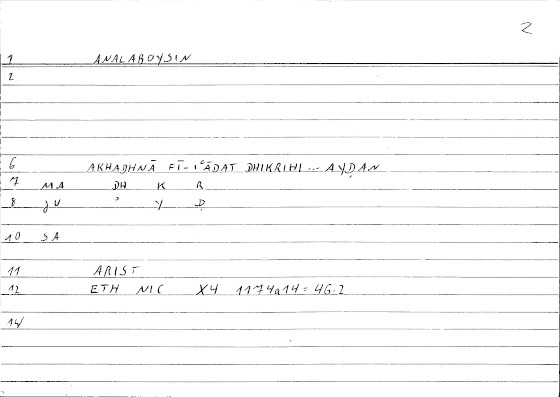 2
1 ANALABOYSIN
2
6 AKHADHNĀ FĪ-IʿĀDAT DHIKRIHI ... AYḌAN
7 MA DH K R
8 JU ʾ Y Ḍ
10 SA
11 ARIST
12 ETH NIC X4 1174a14 = 46.2
14